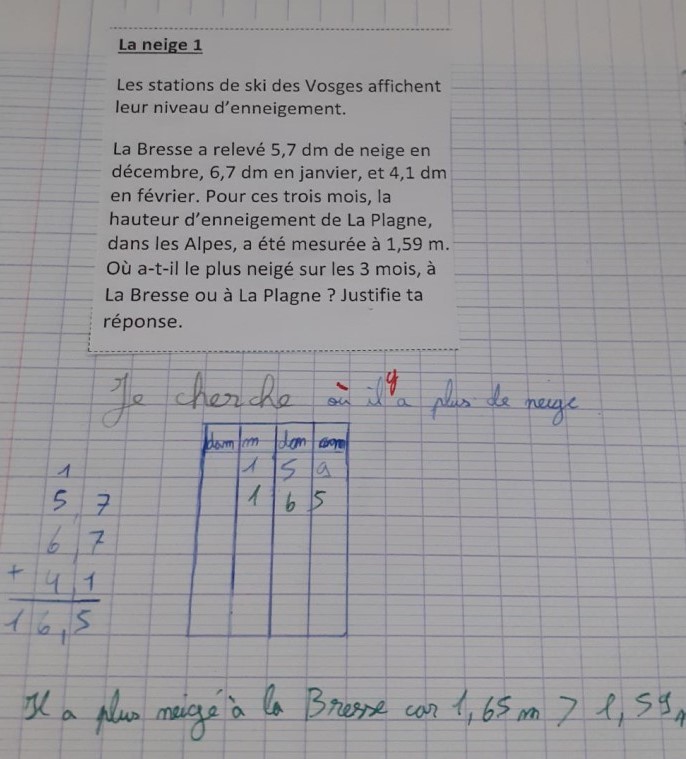 La neige 1
Les stations de ski des Vosges affichent
leur niveau d'enneigement.
La Bresse a relevé 5,7 dm de neige en
décembre, 6,7 dm en janvier, et 4,1 dm
en février. Pour ces trois mois, la
hauteur d'enneigement de La Plagne,
dans les Alpes, a été mesurée à 1,59 m.
Où a-t-il le plus neigé sur les 3 mois, à
La Bresse ou à La Plagne ? Justifie ta
réponse.
Je cherche où il y a plus de neige
dam m dm cm
1 5 9
1 6 5
1
5,7
6,7
+ 4,1
16,5
Il a plus neigé à la Bresse car 1,65 m > 1,59